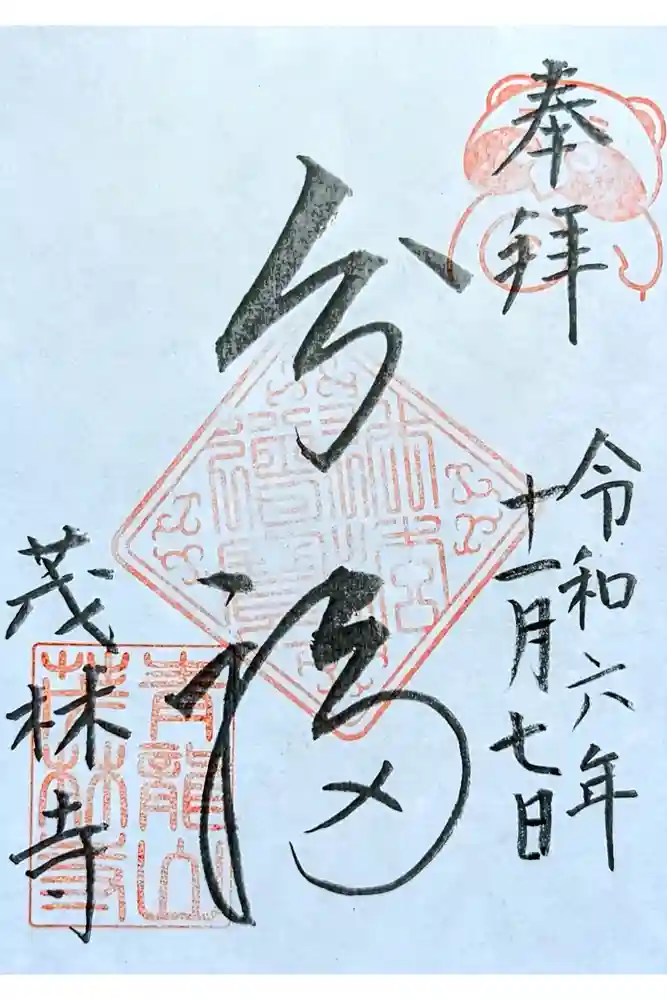 奉拝
令和六年
十一月七日
分福
茂林寺
青龍山
茂林寺